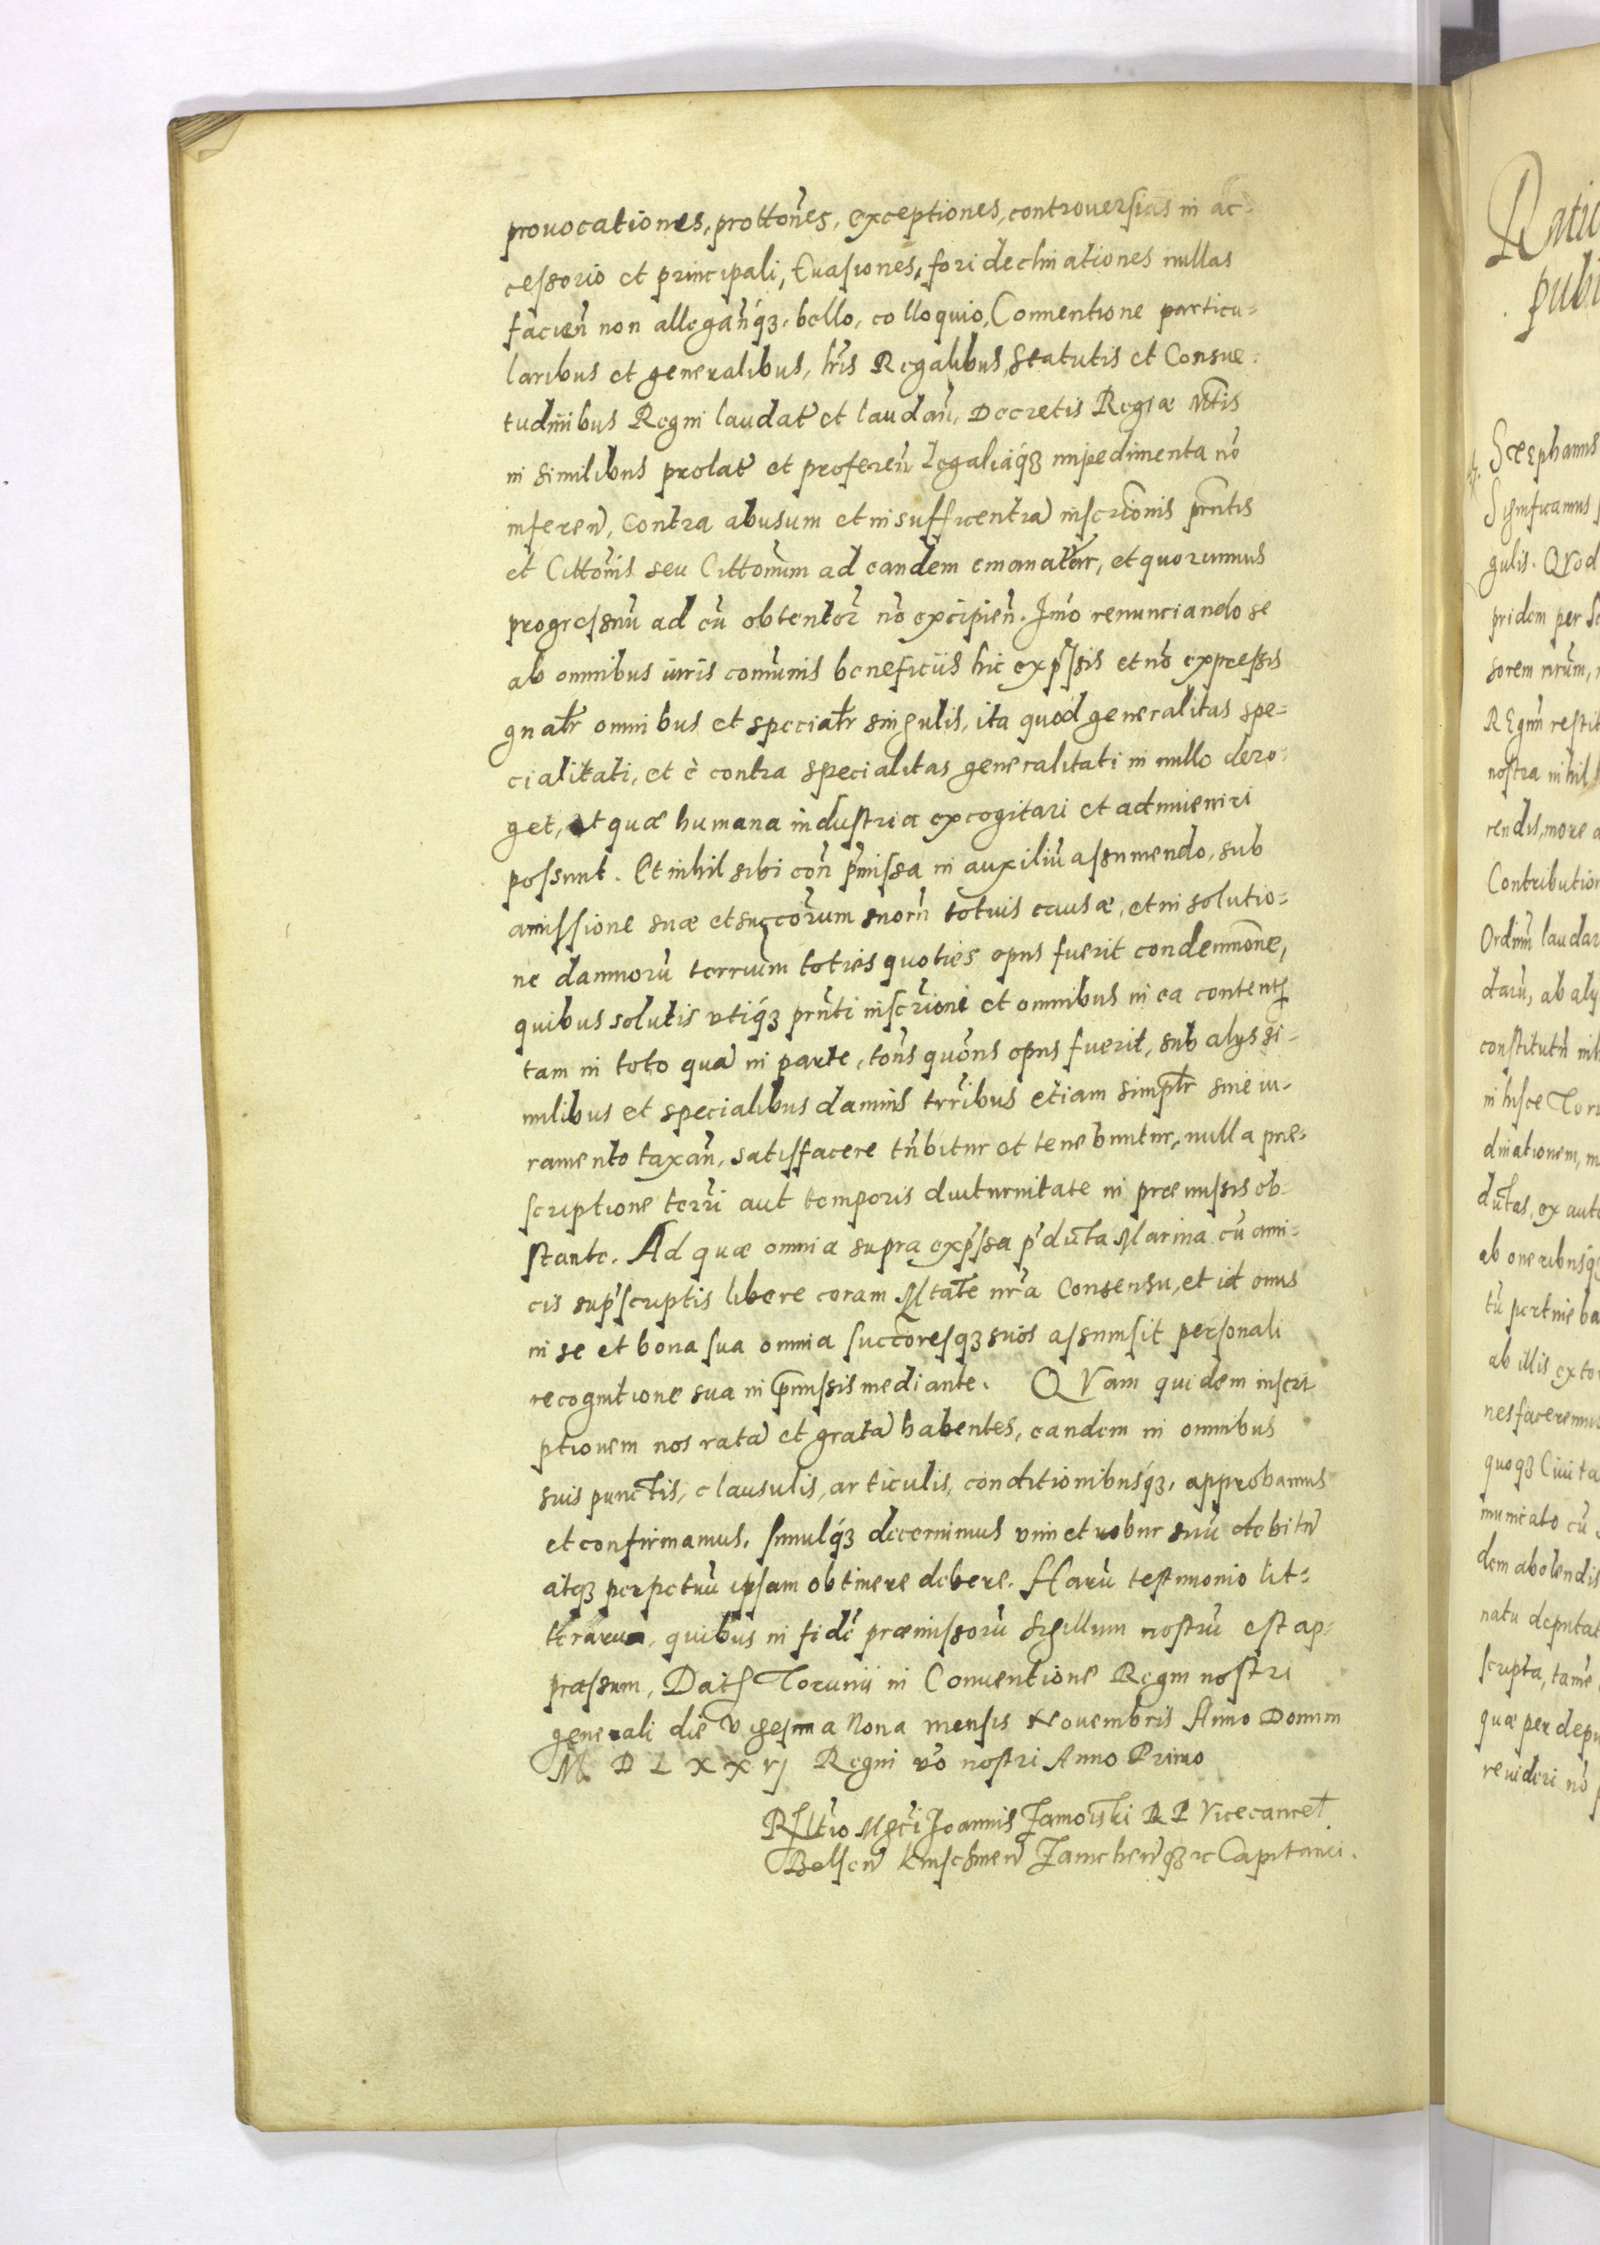 provocationes, prottones, exceptiones, controuersias in ac-
cessorio et principali, Euasiones, fori declinationes nullas
facien̄ non allegan̄q3, bello, colloquio, Conuentione particu-
laribus et generalibus, lr̄is Regalibus, Statutis et Consue-
tudinibus Regni laudat̄ et laudan̄, Decretis Regiæ Mtis
in similibus prolat̄ et proferen̄ Legaliaq3 impedimenta nō
inferen̄, Contra abusum et insufficentiā inscrionis pn̄tis
et Cittonis seu Cittonum ad eandem emanatar, et quorumuis
progressuū ad eū obtentor̄ nō excipien̄. Imo renunciando se
ab omnibus iuris comunis beneficiis hic expr̄ssis et nō expressis
gnalr̄ omnibus et specialr̄ singulis, ita quod generalitas spe-
cialitati, et è contra specialitas generalitati in nullo dero-
get, et quæ humana industria excogitari et adinueniri
possunt. Et nihil sibi con̄ pr̄missa in auxiliū assumendo, sub
amissione suæ et succorum suorū totius causæ, et in solutio-
ne damnorū terrium toties quoties opus fuerit condemnōne,
quibus solutis vtiq3 prn̄ti inscrioni et omnibus in ea content̄
tam in toto quā in parte, tons quons opus fuerit, sub alys si-
milibus et specialibus damnis trribus etiam simplr̄ sine iu-
ramento taxan̄, satisfacere tn̄bitur et tenebuntur, nulla præ-
scriptione terri aut temporis diuturnitate in præmissis ob-
stante. Ad quæ omnia supra expr̄ssa pr̄dicta Marina cū ami-
cis supr̄scriptis libere coram Mtate nr̄a Consensu, et id onus
in se et bona sua omnia succoresq3 suos assumsit personali
recognitione sua in pr̄missis mediante. QVam quidem inscri
ptionem nos ratā et gratā habentes, eandem in omnibus
suis punctis, clausulis, articulis, conditionibusq3, approbamus
et confirmamus. Simulq3 decernimus vim et robur suū debitū
atq3 perpetuū ipsam obtinere debere. Harū testimonio lit-
terarum, quibus in fidē præmissorū Sigillum nostrū est ap-
præssum, Dat̄ Torunii in Conuentione Regni nostri
generali die Vigesima Nona mensis Nouembris Anno Domini
M D L X X vj Regni vō nostri Anno Primo
Rltio Mgci Joannis Zamoiski R P Vicecancel̄
Belscn̄ Zamchen̄ q3 rc Capitanei.
Ratio
pub
Stephanus
Significamus
gulis. QVod
pridem per
sorem nrum,
REgnū
nostra nihil
rendis, more
Contribution
Ordinū laudar
darū, ab aly
constitutn
in hisce Toru
dinationem,
ductas, ex
ab oneribusq
tū pertine ba
ab illis
nes faceremus
quoq3 Ciuita
municato cū
dem abolendis
natu deputat
scripta, tame
quæ per depu
reuideri nō